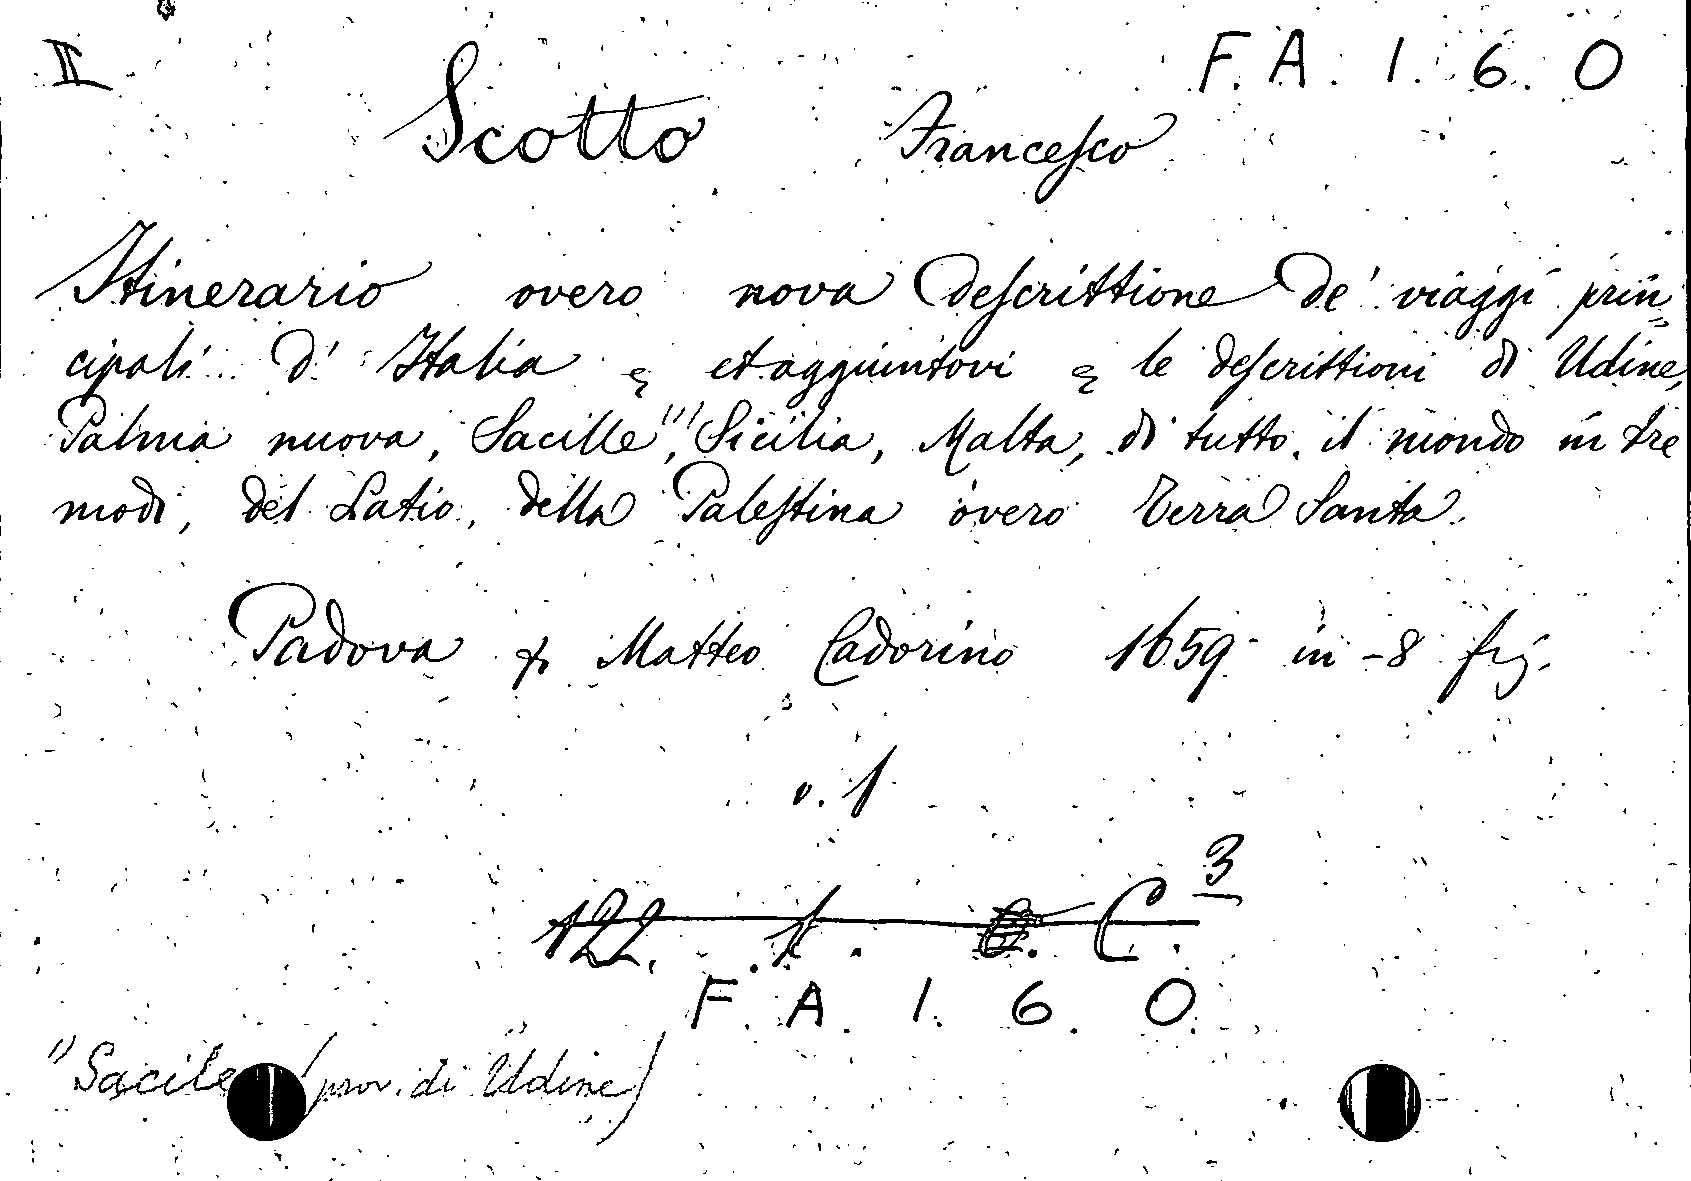 II F. A. 1. 6. 0
Scotto Francesco
Itinerario overo nova descrittione de' viaggi prin=
cipali d' Italia & et aggiuntovi & le descrittioni di Udine,
Palma nuova, Sacille", Sicilia, Malta, di tutto il mondo in tre
modi, del Latio, della Palestina overo Terra Santa.
Padova p Matteo Cadorino 1659 in-8 fig.
v. 1
122. 1. C. 3
F. A. 1. 6. 0.
"Sacile (prov. di Udine)